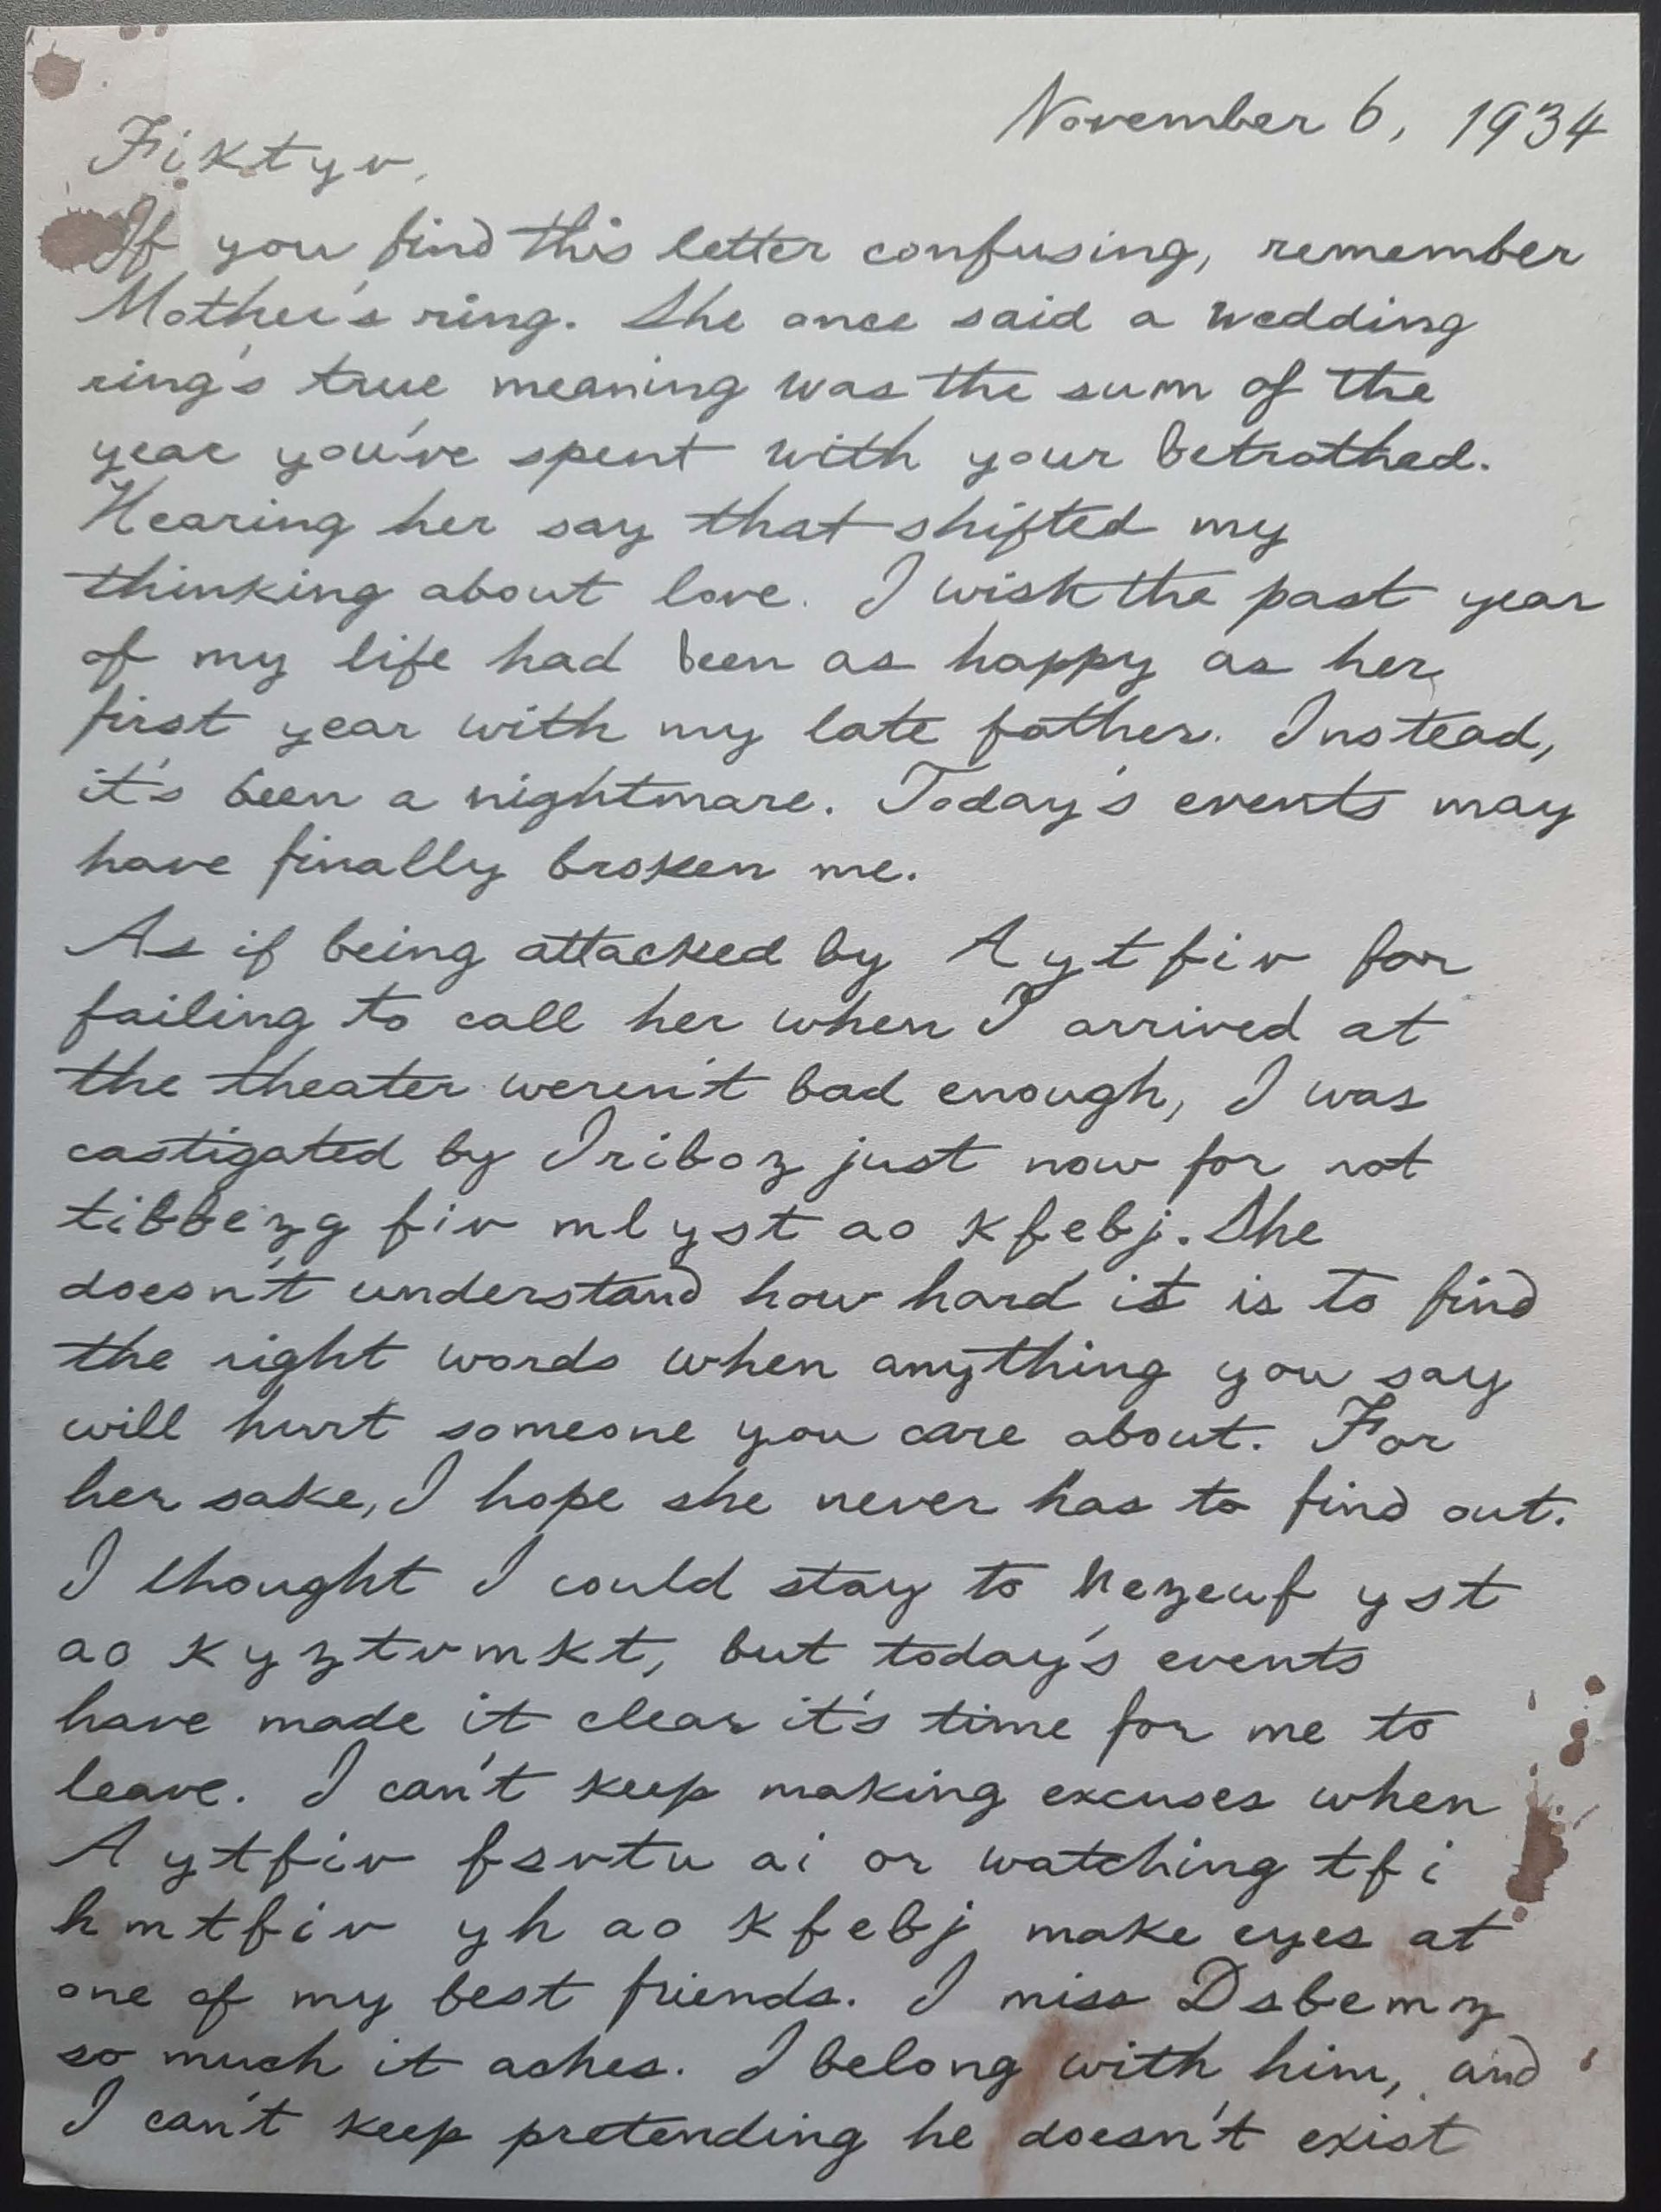 November 6, 1934
Fiktyv,
If you find this letter confusing, remember
Mother's ring. She once said a wedding
ring's true meaning was the sum of the
year you've spent with your betrothed.
Hearing her say that shifted my
thinking about love. I wish the past year
of my life had been as happy as her
first year with my late father. Instead,
it's been a nightmare. Today's events may
have finally broken me.
As if being attacked by Aytfiv for
failing to call her when I arrived at
the theater weren't bad enough, I was
castigated by Iriboz just now for not
tibbezg fiv mlyst ao kfebj. She
doesn't understand how hard it is to find
the right words when anything you say
will hurt someone you care about. For
her sake, I hope she never has to find out.
I thought I could stay to hezeuf yst
ao kyztvmkt, but today's events
have made it clear it's time for me to
leave. I can't keep making excuses when
Aytfiv fsvtu ai or watching tfi
hmtfiv yh ao kfebj make eyes at
one of my best friends. I miss Dsbemz
so much it aches. I belong with him, and
I can't keep pretending he doesn't exist